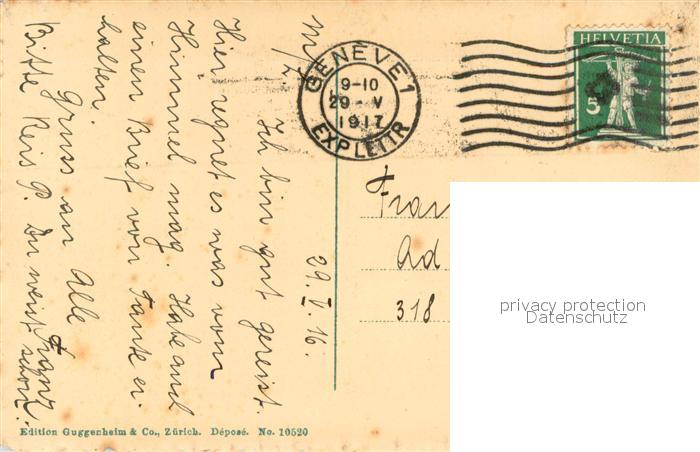 HELVETIA
5
GENÈVE 1
9-10
29 - V
1917
EXP. LETTR
29. V. 16.
M/L
Ich bin gut gereist.
Hier regnet es was vom
Himmel mag. Habe auch
einen Brief von Tante er-
halten.
Gruss an Alle
Franz
Bitte Reis P. Du weist schon.
Frau
Ad
318
privacy protection
Datenschutz
Edition Guggenheim & Co., Zürich. Déposé. No. 10520